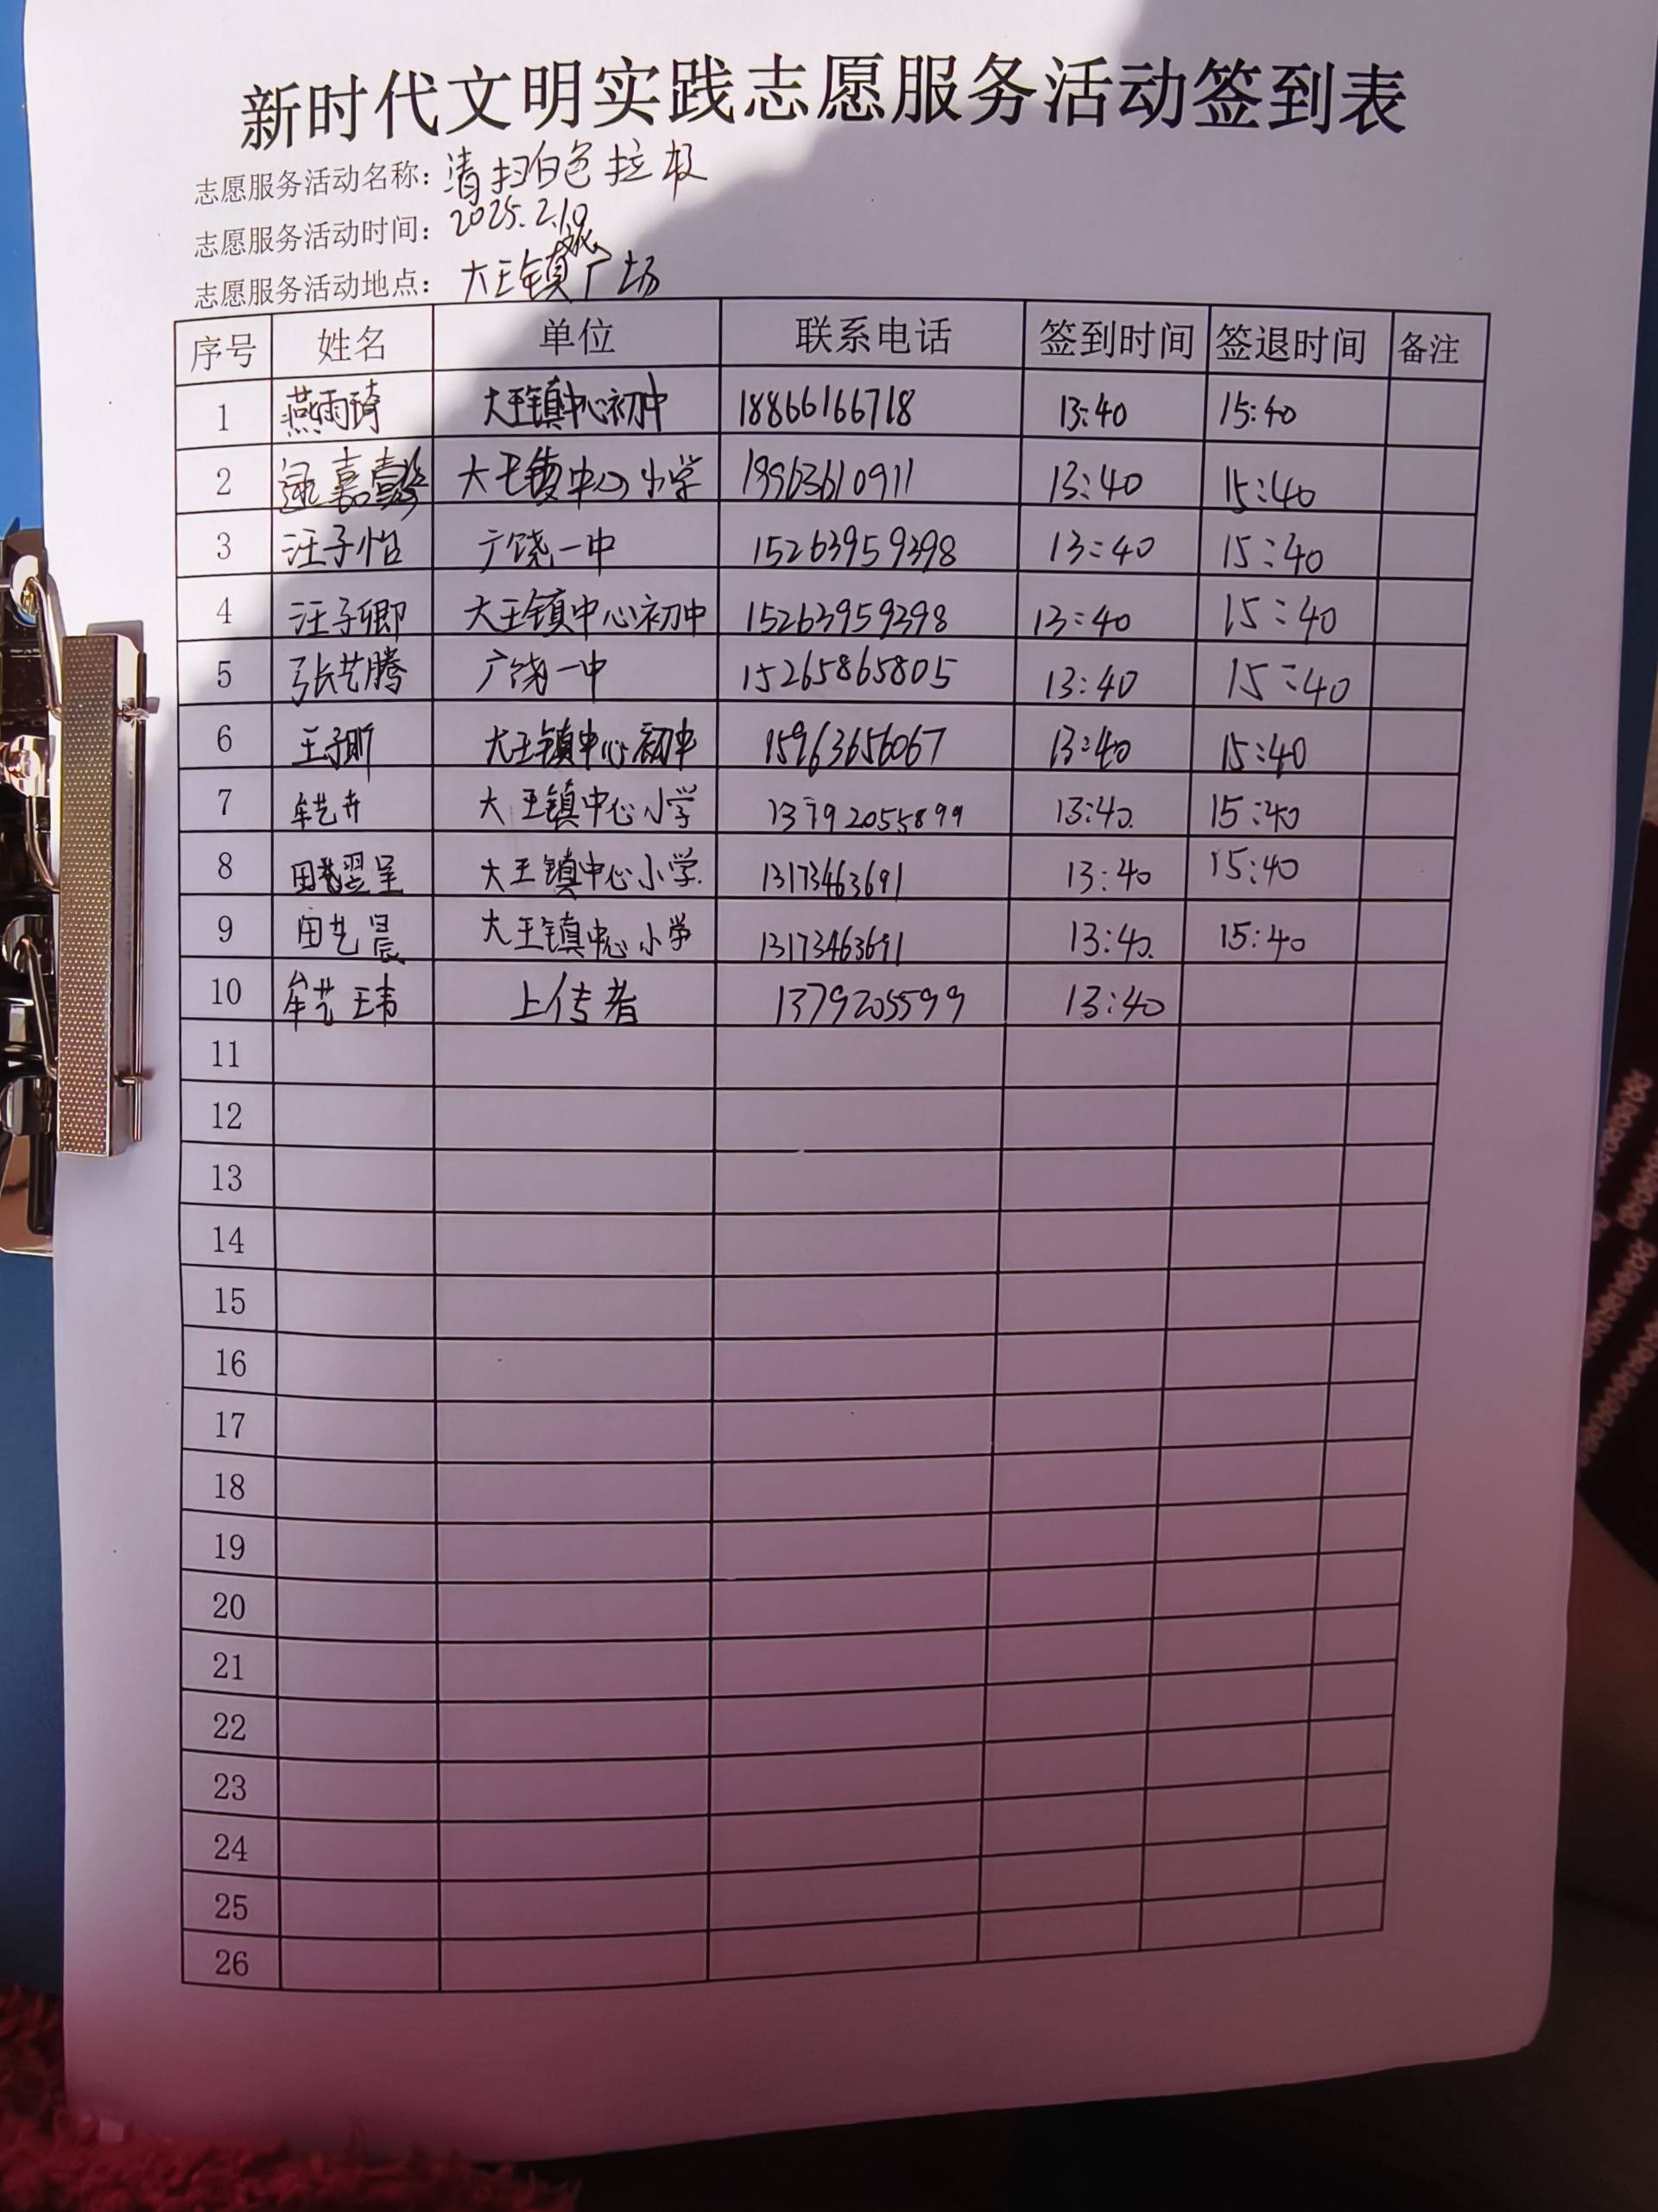 新时代文明实践志愿服务活动签到表
志愿服务活动名称：清扫白色垃圾
志愿服务活动时间：2025.2.10
志愿服务活动地点：大王镇文化广场
序号 姓名 单位 联系电话 签到时间 签退时间 备注
1 燕雨琦 大王镇中心初中 18866166718 13:40 15:40
2 嘉懿 大王镇中心小学 13963610911 13:40 15:40
3 汪子怡 广饶一中 15263959398 13:40 15:40
4 汪子卿 大王镇中心初中 15263959398 13:40 15:40
5 张艺腾 广饶一中 15265865805 13:40 15:40
6 王子昕 大王镇中心初中 15963656067 13:40 15:40
7 牟艺卉 大王镇中心小学 13792055899 13:40 15:40
8 田翌呈 大王镇中心小学 13173463691 13:40 15:40
9 田艺晨 大王镇中心小学 13173463691 13:40 15:40
10 牟艺玮 上传者 1379205599 13:40
11
12
13
14
15
16
17
18
19
20
21
22
23
24
25
26